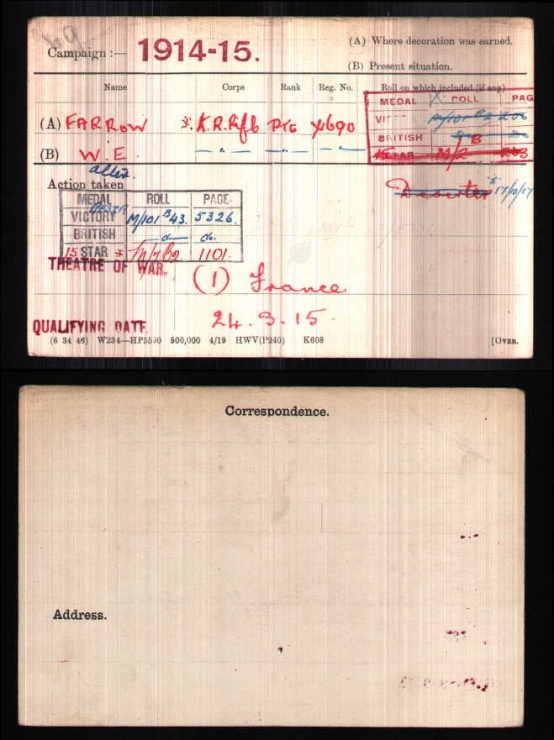 Campaign :— 1914-15.
(A) Where decoration was earned.
(B) Present situation.
Name Corps Rank Reg. No. Roll on which included (if any)
MEDAL ROLL PAG
(A) FARROW K.R.Rif C Pte 4690
BRITISH
(B) W.E. —„— —„— —„—
15 STAR
Action taken
Deserter 17/0/17
MEDAL ROLL PAGE
VICTORY M/101 B43. 5326.
BRITISH do do.
15 STAR 1101.
THEATRE OF WAR. (1) France
QUALIFYING DATE 24.3.15.
(6 34 46) W234—HP5590 500,000 4/19 HWV(P240) K608 [OVER.
Correspondence.
Address.